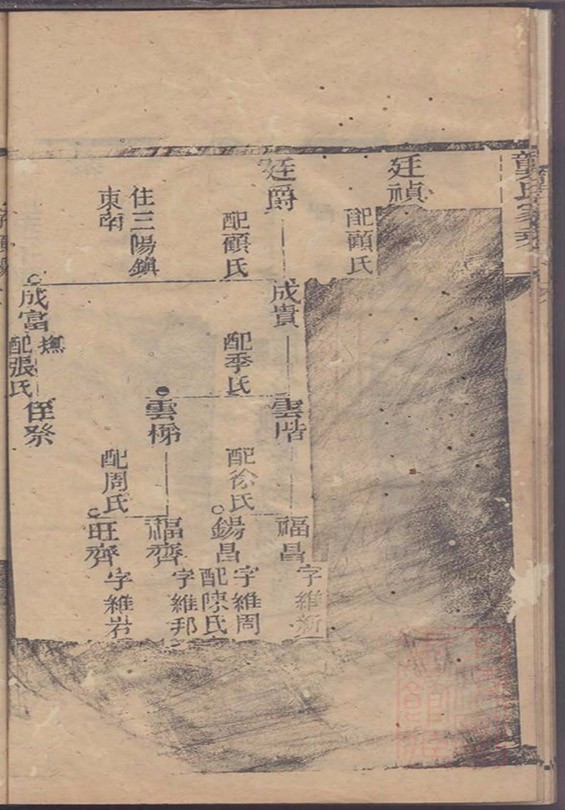 龔氏家乘
廷禎
配顧氏
廷爵
配顧氏
住三陽鎮
東南
成貴
配季氏
成富
配張氏
雲階
配徐氏
雲梯
配周氏
侄祭
福昌
字維新
錫昌
字維周
配陳氏
福齊
字維邦
旺齊
字維岩